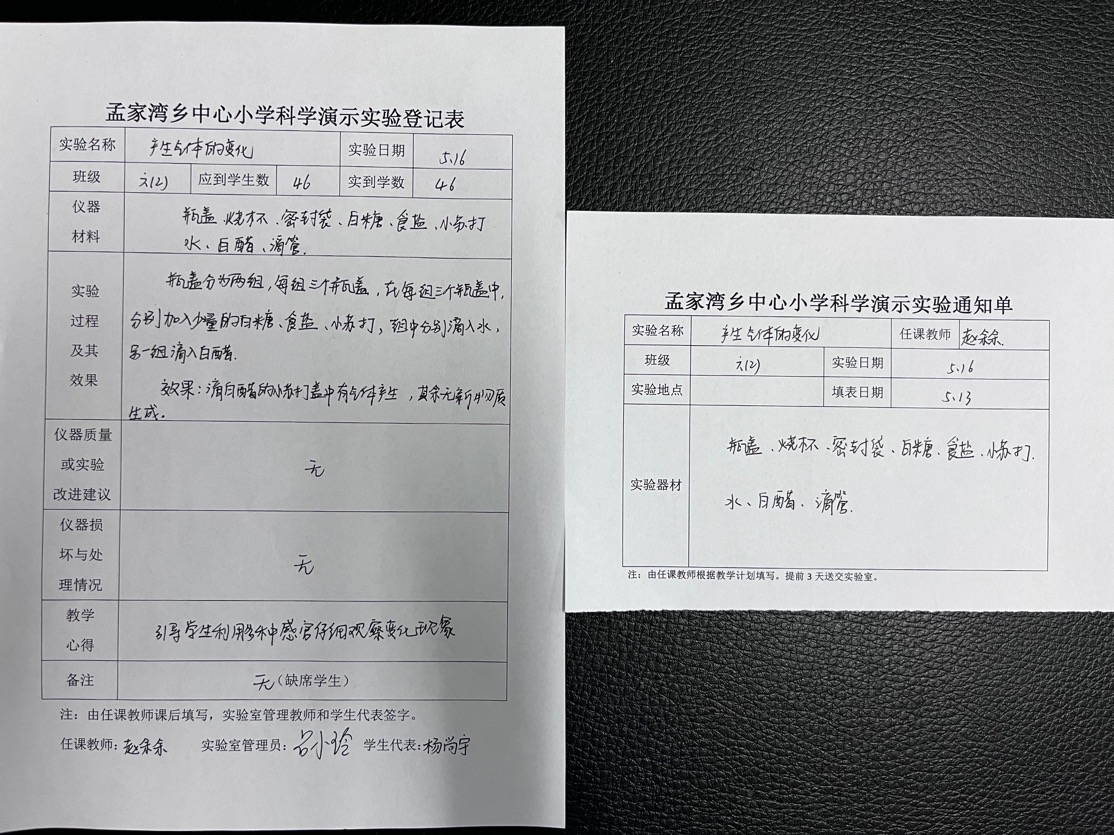 孟家湾乡中心小学科学演示实验登记表
实验名称 产生气体的变化 实验日期 5.16
班级 六(2) 应到学生数 46 实到学数 46
仪器
材料
瓶盖、烧杯、密封袋、白糖、食盐、小苏打
水、白醋、滴管.
实验
过程
及其
效果
瓶盖分为两组,每组三个瓶盖,在每组三个瓶盖中,
分别加入少量的白糖、食盐、小苏打,一组中分别滴入水,
另一组滴入白醋.
效果:滴白醋的小苏打盖中有气体产生,其余无新物质
生成。
仪器质量
或实验
改进建议
无
仪器损
坏与处
理情况
无
教学
心得
引导学生利用多种感官仔细观察变化现象
备注 无(缺席学生)
注:由任课教师课后填写,实验室管理教师和学生代表签字。
任课教师:赵余余 实验室管理员:吕小玲 学生代表:杨尚宇
孟家湾乡中心小学科学演示实验通知单
实验名称 产生气体的变化 任课教师 赵余余.
班级 六(2) 实验日期 5.16
实验地点 填表日期 5.13
实验器材
瓶盖、烧杯、密封袋、白糖、食盐、小苏打.
水、白醋、滴管.
注:由任课教师根据教学计划填写。提前 3 天送交实验室。